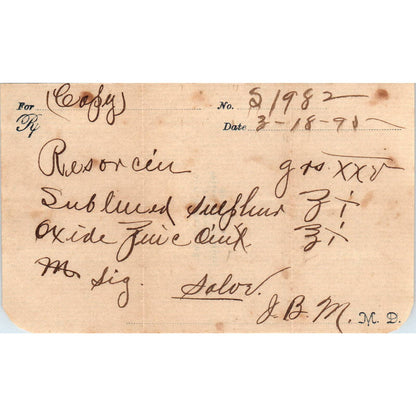 For (Copy) No. S1982
℞ Date 3-18-95
Resorcin grs XXV
Sublimed sulphur ʒ i
Oxide Zinc Oint. ℥ i
M Sig. Salve.
J. B. M. M. D.